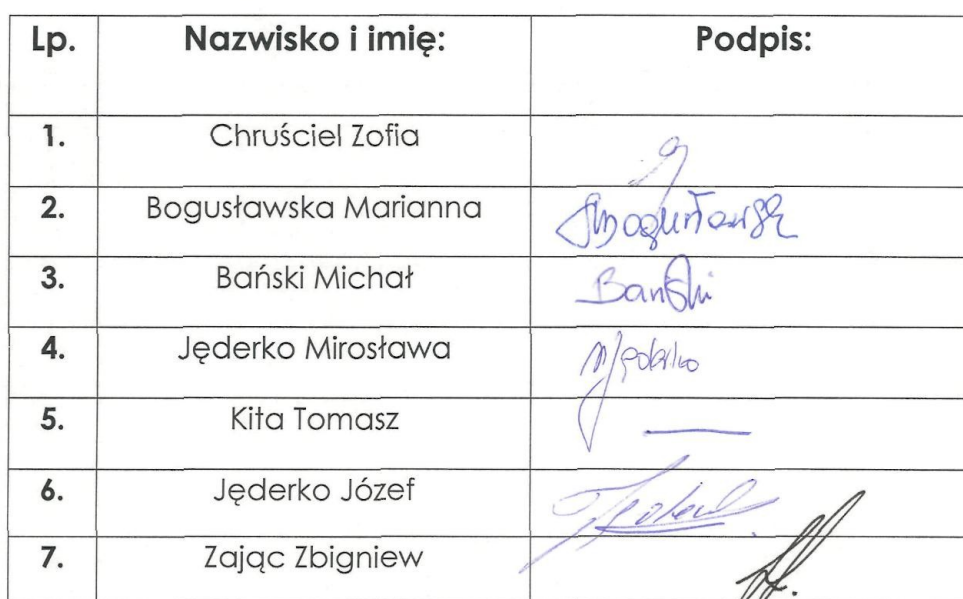 Lp. Nazwisko i imię: Podpis:
1. Chruściel Zofia
2. Bogusławska Marianna MBogusławska
3. Bański Michał Bański
4. Jęderko Mirosława MJęderko
5. Kita Tomasz —
6. Jęderko Józef
7. Zając Zbigniew